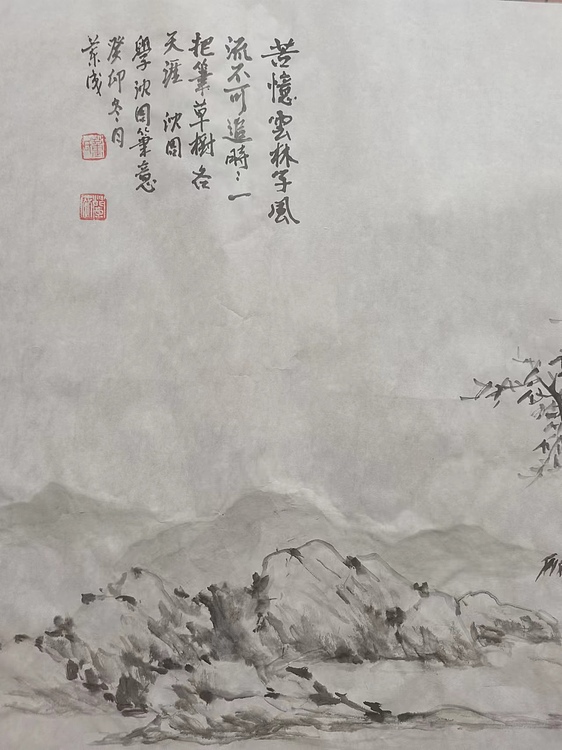 苦憶雲林子風
流不可追時〻一
把筆草樹各
天涯 沈周
學沈周筆意
癸卯冬月